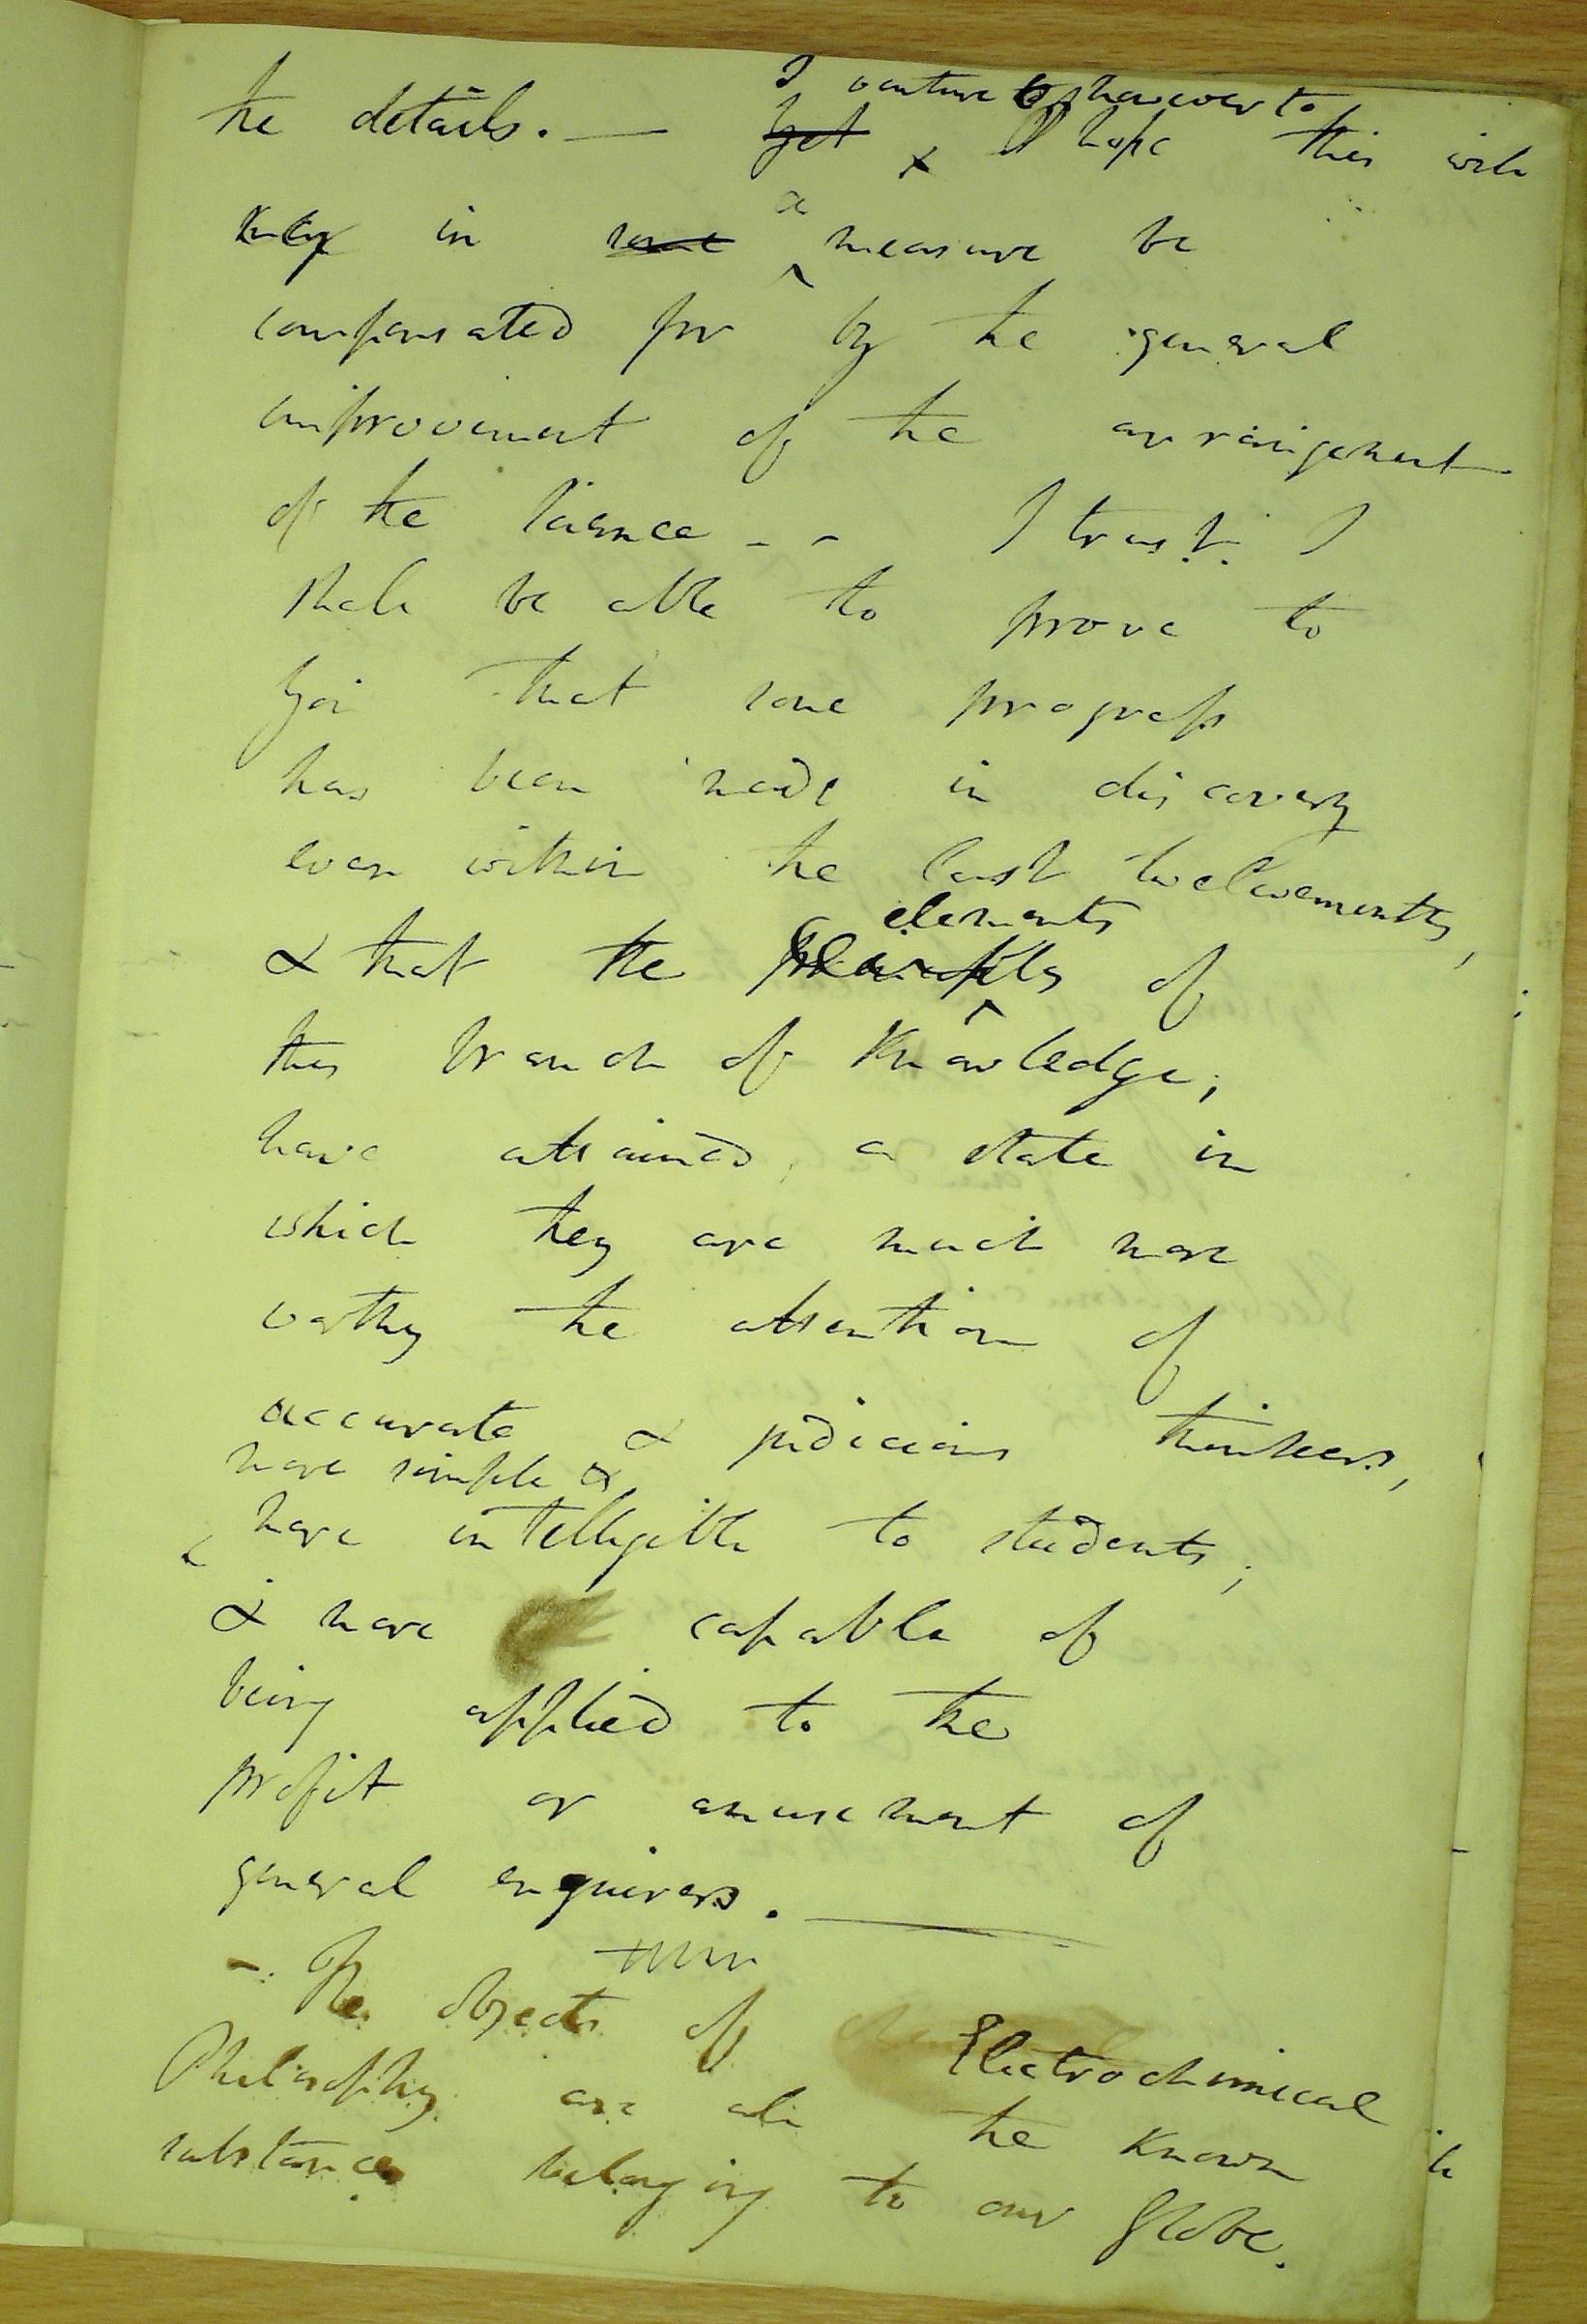 I venture however to
the details. — Yet & I hope this will
may in some a measure be
compensated for by the general
improvement of the arrangement
of the Science - - I trust I
shall be able to prove to
you that some progress
has been made in discovery
even within the last twelvemonths,
elements
& that the principles of
this branch of Knowledge;
have attained, a state in
which they are much more
worthy the attention of
accurate & judicious thinkers,
more simple &
more intelligible to students;
& more capable of
being applied to the
profit or amusement of
general enquirers. —
- The objects of Electrochemical
Philosophy are all the known
substances belonging to our Globe.